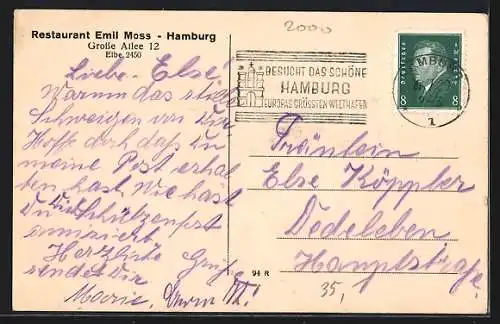 2000
Restaurant Emil Moss - Hamburg
Große Allee 12
Elbe 2450
BESUCHT DAS SCHÖNE
HAMBURG
EUROPAS GRÖSSTEN WELTHAFEN
Deutsches Reich
8 8
1
Liebe Else!
Warum das
Schweigen von Dir
Hoffe doch daß Du
meine Post erhal
ten hast. Wie hast
Du Dich Schützenfest
amüsiert
Herzliche Grüße
sendet Dir
Fräulein
Else Köppler
Dedeleben
Hauptstraße.
94 R
35,